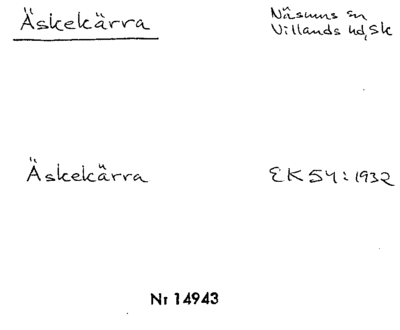 Äskekärra
Näsums sn
Villands hd, Sk
Äskekärra
EK 54: 1932
Nr 14943